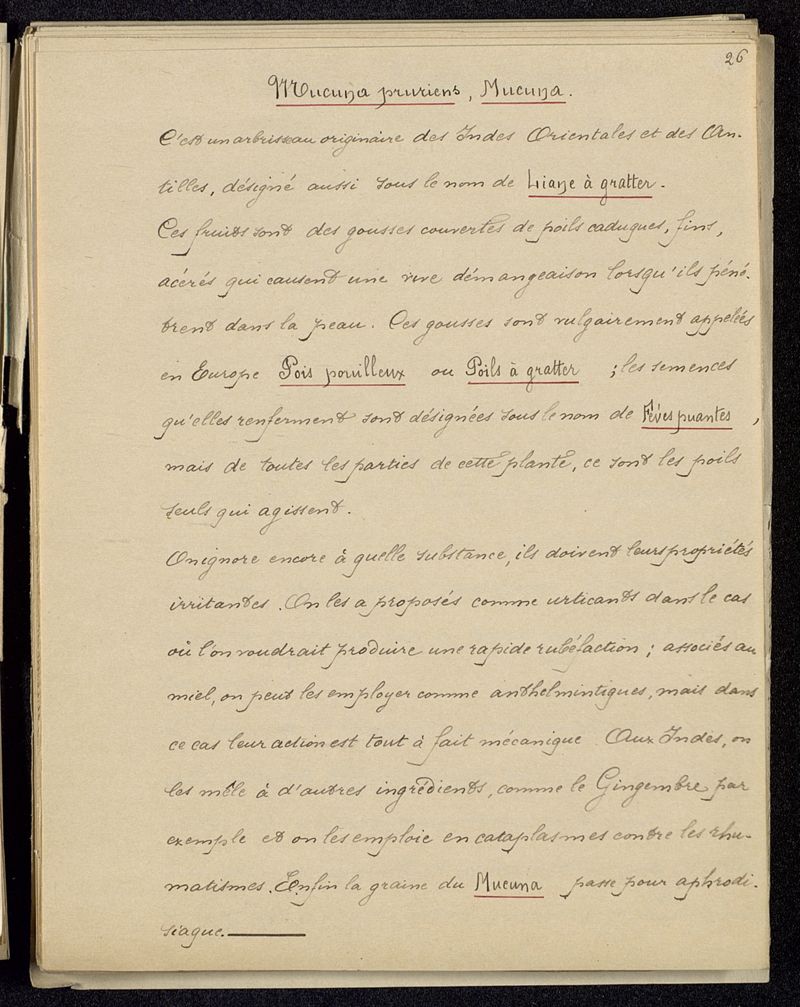 26
Mucuna pruriens, Mucuna.
C'est un arbrisseau originaire des Indes Orientales et des An-
tilles, désigné aussi sous le nom de Liane à gratter.
Ces fruits sont des gousses couvertes de poils caduques, fins,
acérés qui causent une vive démangeaison lorsqu'ils péné-
trent dans la peau. Ces gousses sont vulgairement appelées
en Europe Pois pouilleux ou Poils à gratter ; les semences
qu'elles renferment sont désignées sous le nom de Fèves puantes,
mais de toutes les parties de cette plante, ce sont les poils
seuls qui agissent.
On ignore encore à quelle substance, ils doivent leurs propriétés
irritantes. On les a proposés comme urticants dans le cas
où l'on voudrait produire une rapide rubéfaction ; associés au
miel, on peut les employer comme anthelmintiques, mais dans
ce cas leur action est tout à fait mécanique Aux Indes, on
les mêle à d'autres ingrédients, comme le Gingembre par
exemple et on les emploie en cataplasmes contre les rhu-
matismes. Enfin la graine du Mucuna passe pour aphrodi-
siaque.